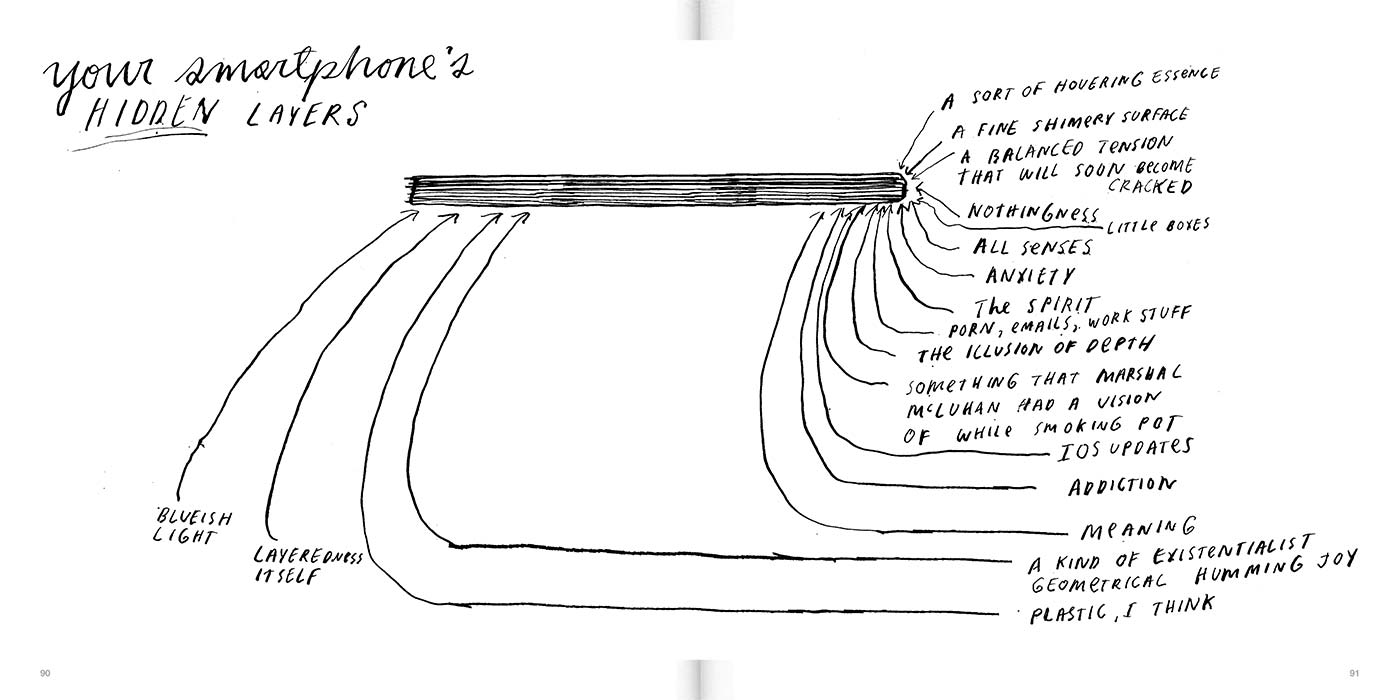 your smartphone's
HIDDEN LAYERS
A SORT OF HOVERING ESSENCE
A FINE SHIMERY SURFACE
A BALANCED TENSION
THAT WILL SOON BECOME
CRACKED
NOTHINGNESS
LITTLE BOXES
ALL SENSES
ANXIETY
The SPIRIT
PORN, EMAILS, WORK STUFF
THE ILLUSION OF DEPTH
SOMETHING THAT MARSHAL
McLUHAN HAD A VISION
OF WHILE SMOKING POT
IOS UPDATES
ADDICTION
MEANING
A KIND OF EXISTENTIALIST
GEOMETRICAL HUMMING JOY
PLASTIC, I THINK
BLUEISH
LIGHT
LAYEREDNESS
ITSELF
90
91